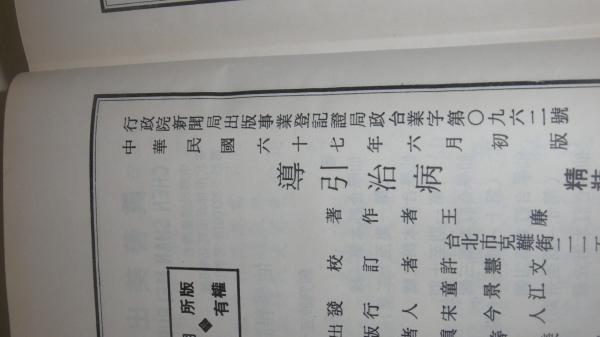 行政院新聞局出版事業登記證局政台業字第〇九六二號
中華民國六十七年六月初版
導引治病
精裝
著作者王廉
台北市克難街二一
校訂者許慧文
童景江
發行人宋今人
出版者
所版
有權